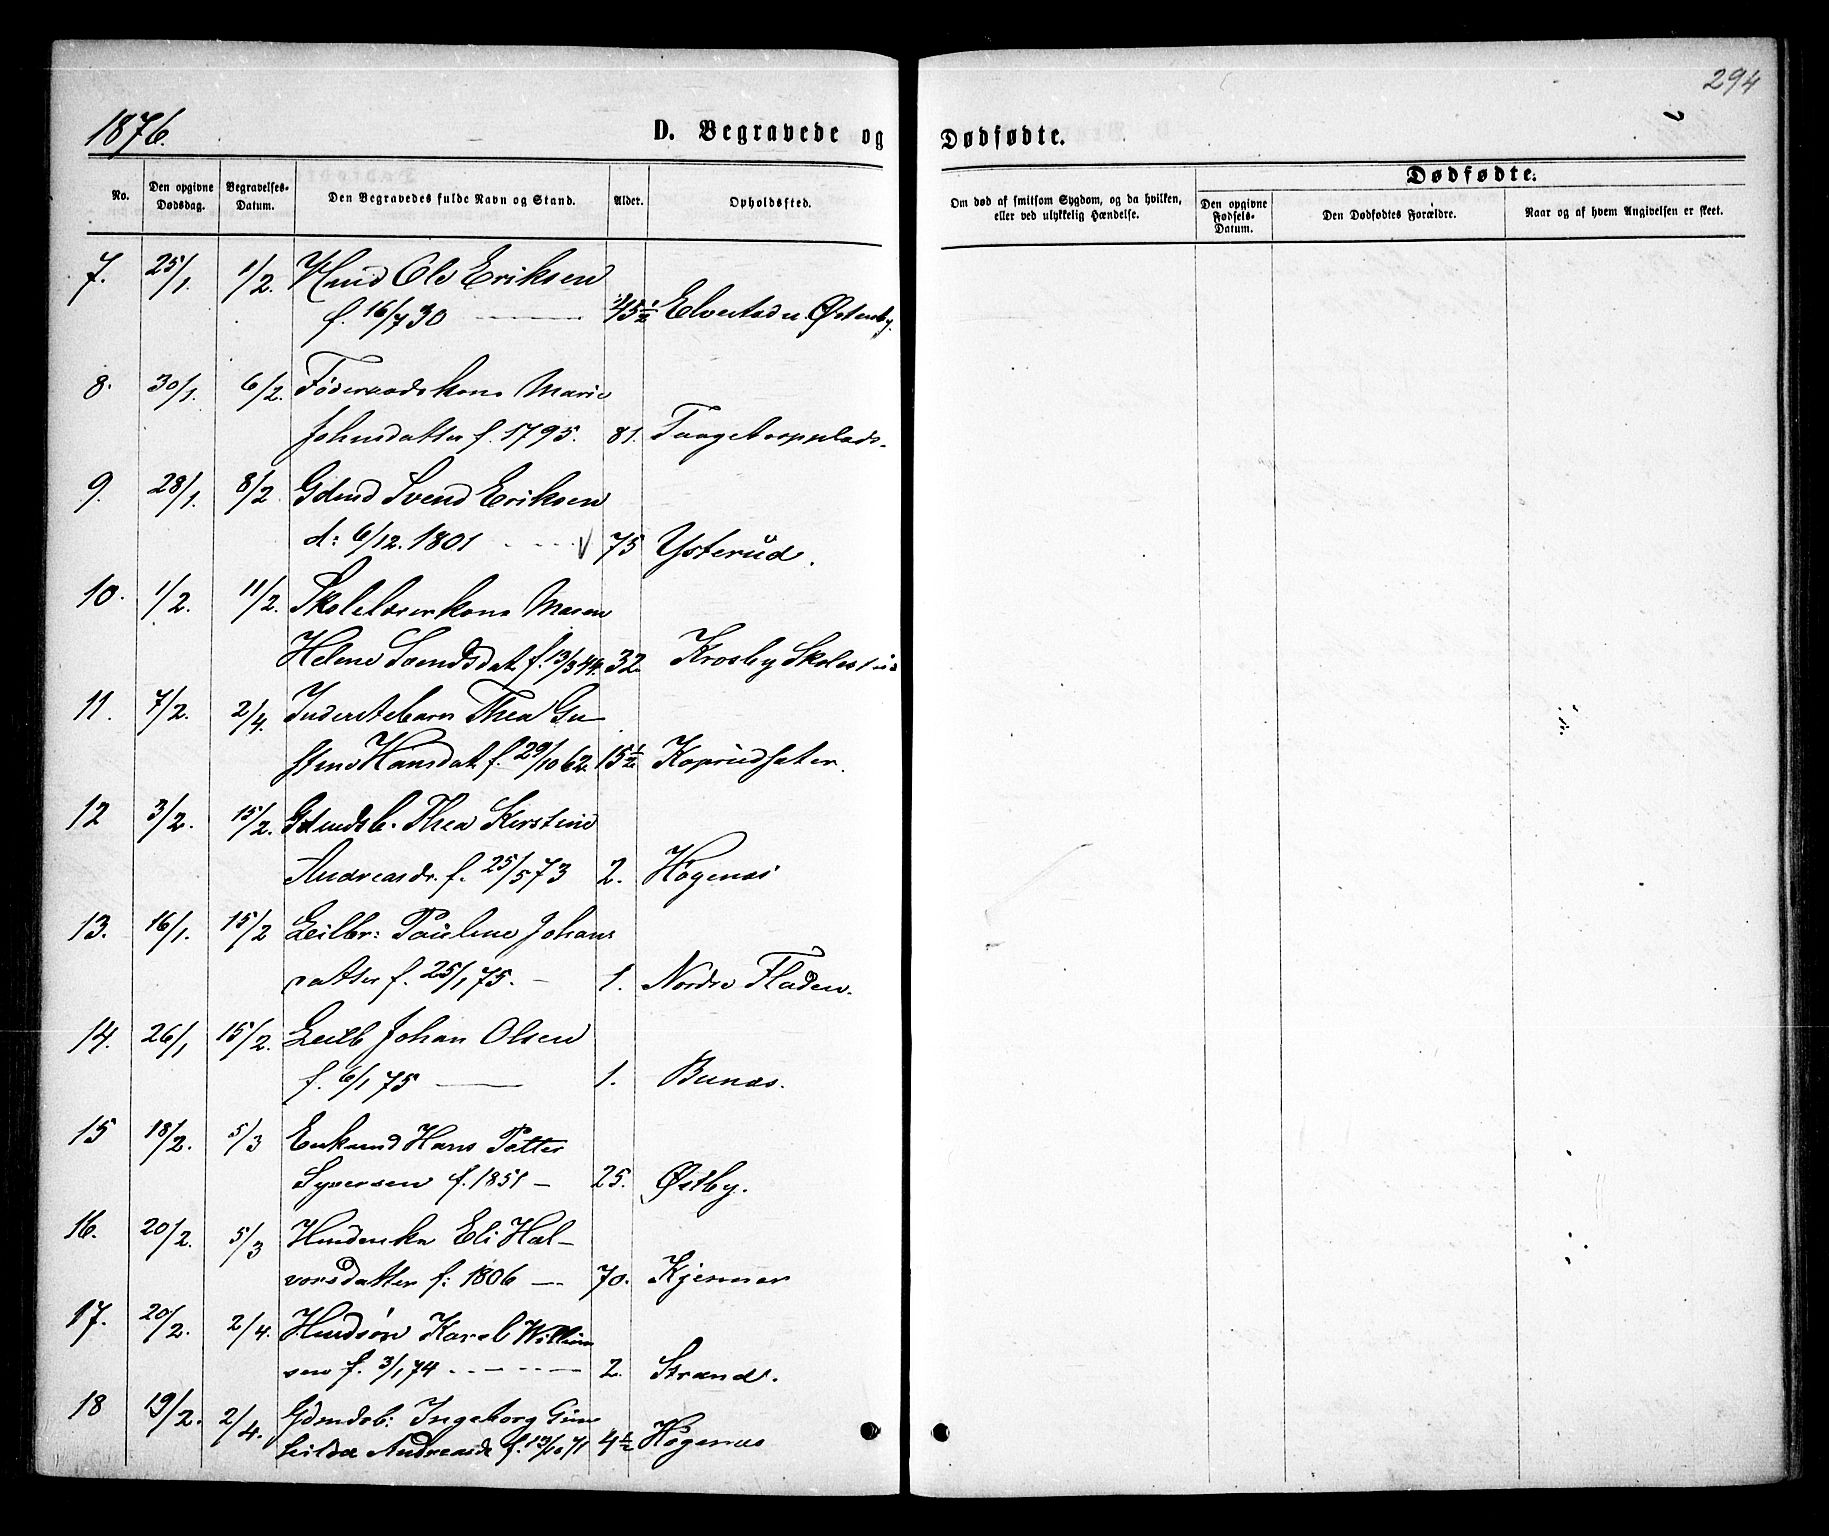 294
1876.
D. Begravede og Dødfødte.
No.
Den opgivne Dødsdag.
Begravelses-Datum.
Den Begravedes fulde Navn og Stand.
Alder.
Opholdssted.
Om død af smitsom Sygdom, og da hvilken, eller ved ulykkelig Hændelse.
Dødfødte.
Den opgivne Fødsels-Datum.
Den Dødfødtes Forældre.
Naar og af hvem Angivelsen er skeet.
7. 25/1. 1/2. Hmd Ole Eriksen
f. 16/7 30 45 1/2 Elvestad u. Østenby.
8. 30/1. 6/2. Føderaadskone Marie
Johnsdatter f. 1795. 81.
9. 28/1. 8/2. Gdmd Svend Eriksen
d: 6/12. 1801 75 Ysterud.
10. 1/2. 11/2. Skolelærerkone Maren
Helene Svendsdat. f. 13/3 44. 32. Krosby
11. 7/2. 2/4. Inderstebarn Thea Gu-
stine Hansdat. f. 29/10 62. 15 1/2 Koprudsæter.
12 3/2. 15/2. Gdmdsb. Thea Kirstine
Andreasdr. f. 25/5 73 2. Høgenæs
13. 16/1. 15/2 Leilbr: Pauline Johans
datter f. 25/1 75. 1. Nordre Fladen.
14. 26/1 15/2. Leilb Johan Olsen
f. 6/1 75 1. Bunæs.
15 18/2. 5/3 Enkemd Hans Petter
Syversen f. 1851 25. Østby.
16. 20/2. 5/3 Husmenke Eli Hal-
vorsdatter f: 1806 70. Kjernes
17. 20/2. 2/4. Hmdsøn Karel William
sen f. 3/1 74 2. Strand.
18 19/2. 2/4. Gdmdsb: Ingeborg Gun
hilda Andreasdr f. 13/10 71 4 1/2 Høgenæs